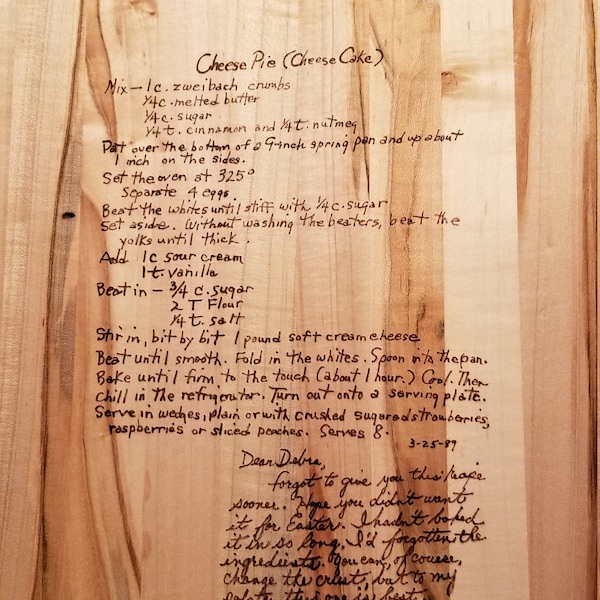 Cheese Pie (Cheese Cake)
Mix - 1 c. zweibach crumbs
1/4 c. melted butter
1/4 c. sugar
1/4 t. cinnamon and 1/4 t. nutmeg
Pat over the bottom of a 9-inch spring pan and up about
1 inch on the sides.
Set the oven at 325°
Separate 4 eggs
Beat the whites until stiff with 1/4 c. sugar
Set aside. Without washing the beaters, beat the
yolks until thick.
Add 1 c sour cream
1 t. vanilla
Beat in - 3/4 c. sugar
2 T Flour
1/4 t. salt
Stir in, bit by bit 1 pound soft cream cheese
Beat until smooth. Fold in the whites. Spoon into the pan.
Bake until firm, to the touch (about 1 hour.) Cool. Then
chill in the refrigerator. Turn out onto a serving plate.
Serve in wedges, plain or with crushed sugared strawberries,
raspberries or sliced peaches. Serves 8.
3-25-89
Dear Debra,
forgot to give you this
sooner. Hope you didn't want
it for Easter. I hadn't baked
it in so long, I'd forgotten the
ingredients. You can, of course,
change the crust, but to my
palate, this one is best.